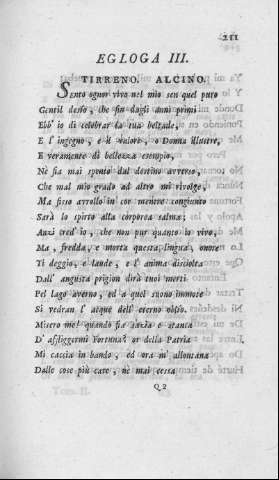 211
EGLOGA III.
TIRRENO. ALCINO.
Sento ognor viva nel mio sen quel puro
Gentil desio, che fin dagli anni primi
Ebb' io di celebrar la tua beltade,
E l' ingegno, e il valore, o Donna illustre,
E veramente di bellezza esempio,
Nè sia mai spento dal destino avverso,
Che mal mio grado ad altro mi rivolge,
Ma fisso avrollo in cor mentre congiunto
Sarà lo spirto alla corporea salma;
Anzi cred' io, che non pur quanto io vivo,
Ma, fredda, e morta questa lingua, onore
Ti deggio, e laude, e l' anima disciolta
Dall' angusta prigion dirà tuoi merti
Pel lago averno, ed a quel suono immote
Si vedran l' atque dell' eterno oblio.
Misero me! quando fia sazia e stanca
D' affliggermi Fortuna? or della Patria
Mi caccia in bando, ed ora m' allontana
Dalle cose più care, nè mai cessa
Q 2